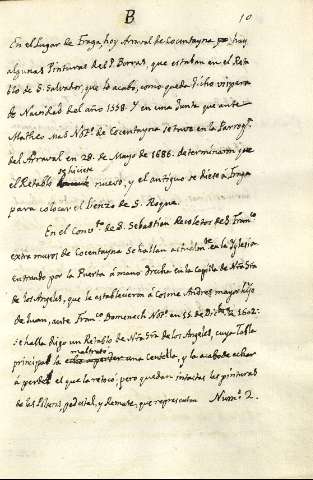 B
10
En el Lugar de Fraga, hoy Arraval de Cocentayna hay
algunas Pinturas del P. Borras, que estaban en el Reta
blo de S. Salvador, que lo acabo, como queda dicho vispera
de Navidad del año 1558. Y en una Junta que ante
Matheo Mas Not.º de Cocentayna se tuvo en la Parroq.ª
del Arraval en 28. de Mayo de 1686. determinaron que
el Retablo se hiciese nuevo, y el antiguo se diese à Fraga
para colocar el lienzo de S. Roque.
En el Conv.to de S. Sebastian Recoletos de S. Fran.co
extra muros de Cocentayna se hallan actualm.te en la Iglesia
entrando por la Puerta à mano drecha en la Capilla de Nra Sra
de los Angeles, que le establecieron à Cosme Andres mayor hijo
de Juan, ante Fran.co Domenech Not.º en 15. de Dic.bre de 1602:
se halla digo un Retablo de Nra Sra de los Angeles, cuya Tabla
principal la maltrató una Centella, y la acabó de echar
à perder el que la retocó, pero quedan intactas las pinturas
de los Pilares, pedestal, y remate, que representan Num.º 2.